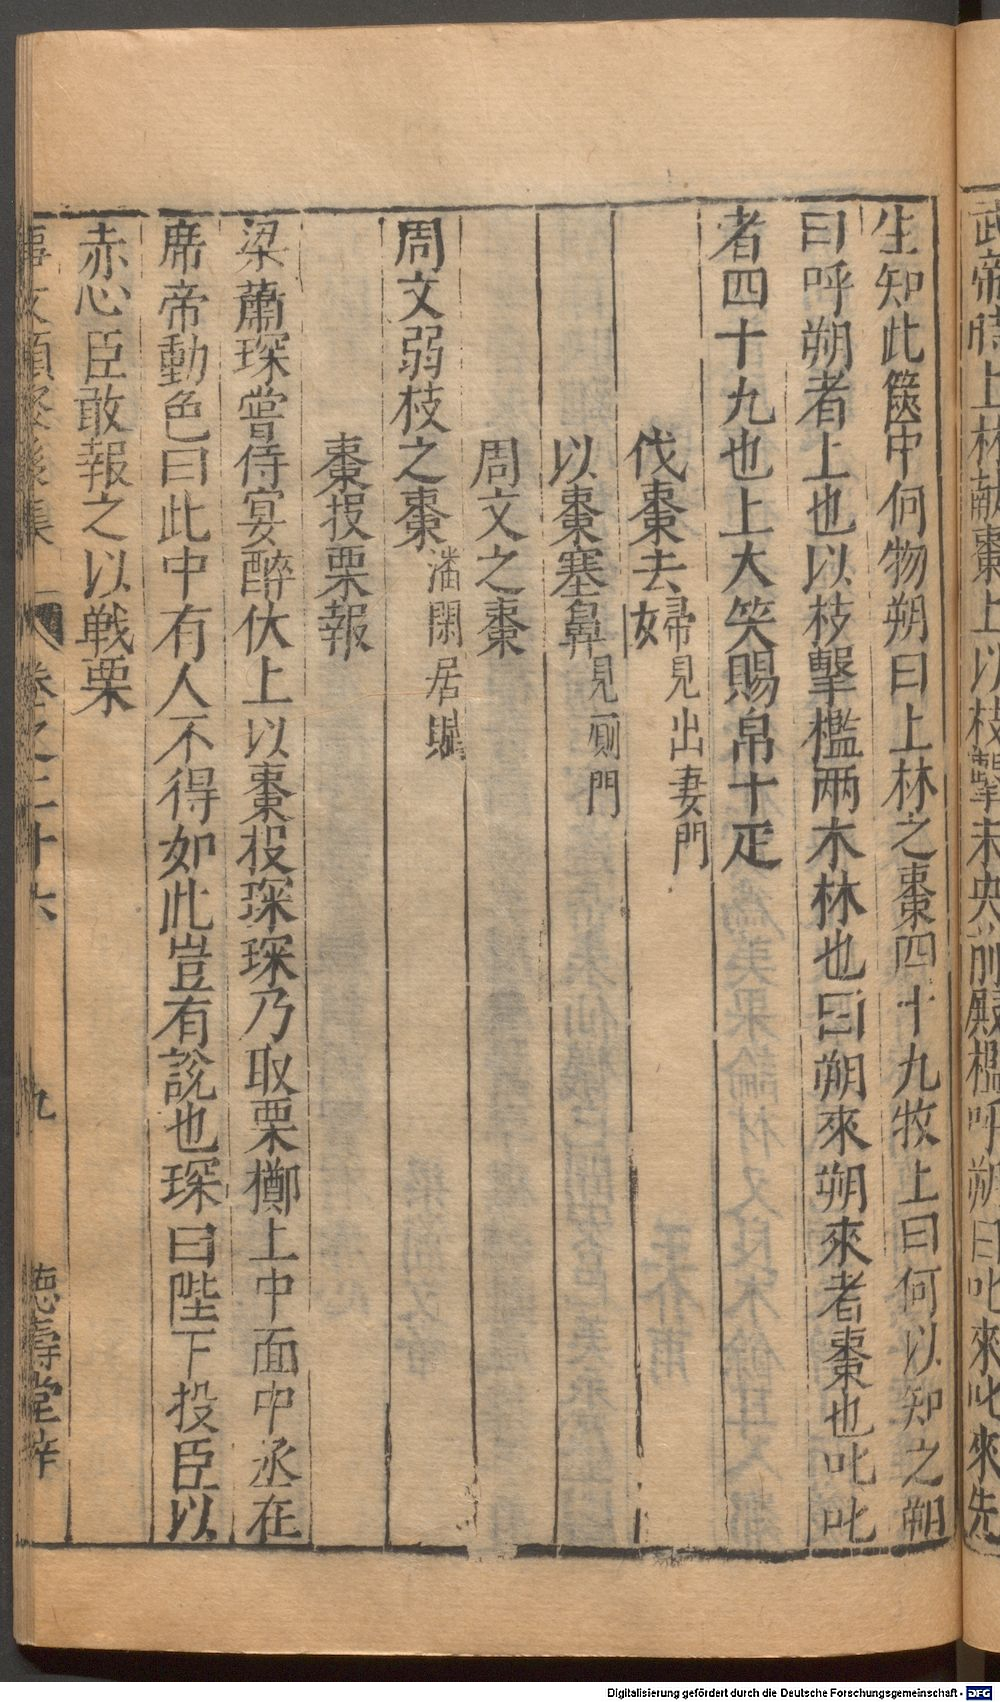 武帝時上林獻棗上以枝擊未央前殿檻呼朔曰叱來叱來先
生知此篋中何物朔曰上林之棗四十九枚上曰何以知之朔
曰呼朔者上也以枝擊檻兩木林也曰朔來朔來者棗也叱叱
者四十九也上大笑賜帛十疋
伐棗去婦見出妻門
以棗塞鼻見厠門
周文之棗
周文弱枝之棗潘閑居賦
棗投栗報
梁蕭琛嘗侍宴醉伏上以棗投琛琛乃取栗擲上中面中丞在
席帝動色曰此中有人不得如此豈有說也琛曰陛下投臣以
赤心臣敢報之以戰栗
事文類聚後集 卷之二十六 九 德壽堂梓
Digitalisierung gefördert durch die Deutsche Forschungsgemeinschaft - DFG